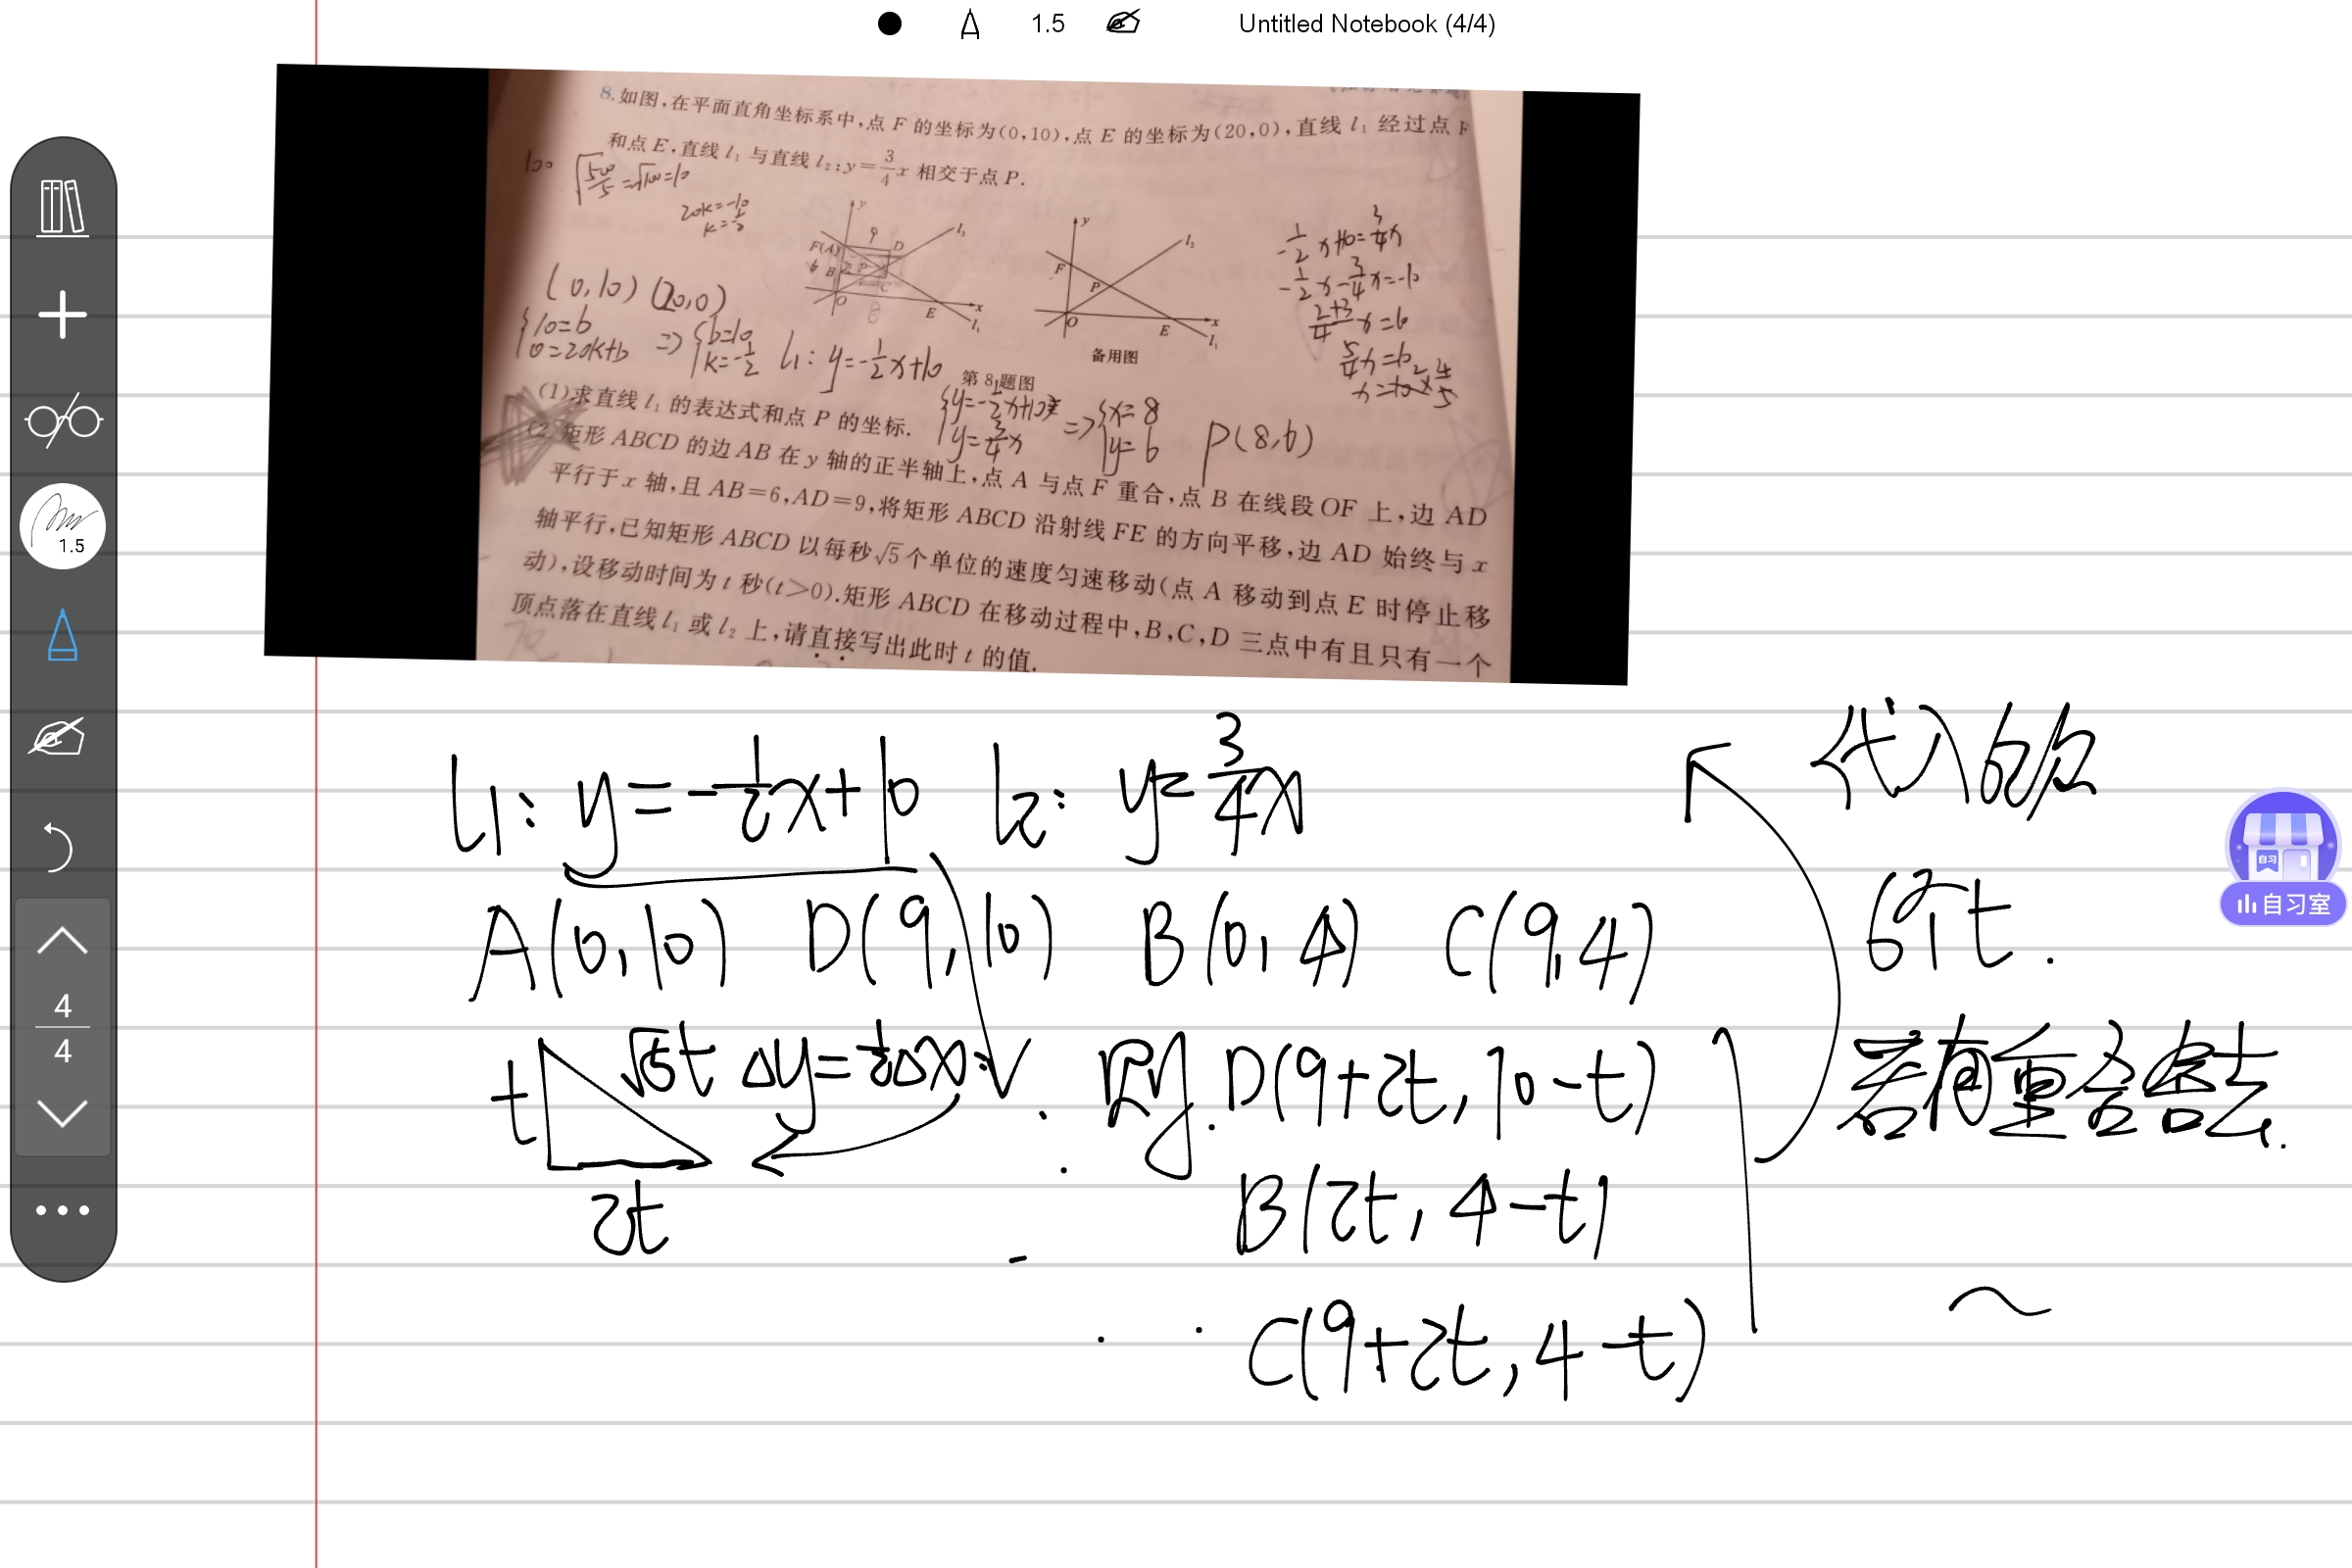 1.5 Untitled Notebook (4/4)
8.如图,在平面直角坐标系中,点 F 的坐标为(0,10),点 E 的坐标为(20,0),直线 l₁ 经过点 F
和点 E,直线 l₁ 与直线 l₂:y=3/4x 相交于点 P.
100 √(500/5)=√100=10
20k=-10
k=-1/2
y
9
D
l₂
F(A)
6
B
P
C
O
8
E
x
l₁
y
l₂
F
P
O
E
x
l₁
备用图
第 8 题图
-1/2x+10=3/4x
-1/2x-3/4x=-10
(2+3)/4x=10
5/4x=10
x=10×4/5
(0,10) (20,0)
{10=b
0=20k+b => {b=10
k=-1/2 l₁: y=-1/2x+10
(1)求直线 l₁ 的表达式和点 P 的坐标.
{y=-1/2x+10
y=3/4x => {x=8
y=6 P(8,6)
(2)矩形 ABCD 的边 AB 在 y 轴的正半轴上,点 A 与点 F 重合,点 B 在线段 OF 上,边 AD
平行于 x 轴,且 AB=6,AD=9,将矩形 ABCD 沿射线 FE 的方向平移,边 AD 始终与 x
轴平行,已知矩形 ABCD 以每秒√5个单位的速度匀速移动(点 A 移动到点 E 时停止移
动),设移动时间为 t 秒(t>0).矩形 ABCD 在移动过程中,B,C,D 三点中有且只有一个
顶点落在直线 l₁ 或 l₂ 上,请直接写出此时 t 的值.
l₁: y=-1/2x+10 l₂: y=3/4x
代入6次
A(0,10) D(9,10) B(0,4) C(9,4)
6个t.
t √5t Δy=1/2Δx
2t
则. D(9+2t,10-t)
B(2t,4-t)
C(9+2t,4-t)
若有重合舍去.
1.5
4
4
自习
自习室